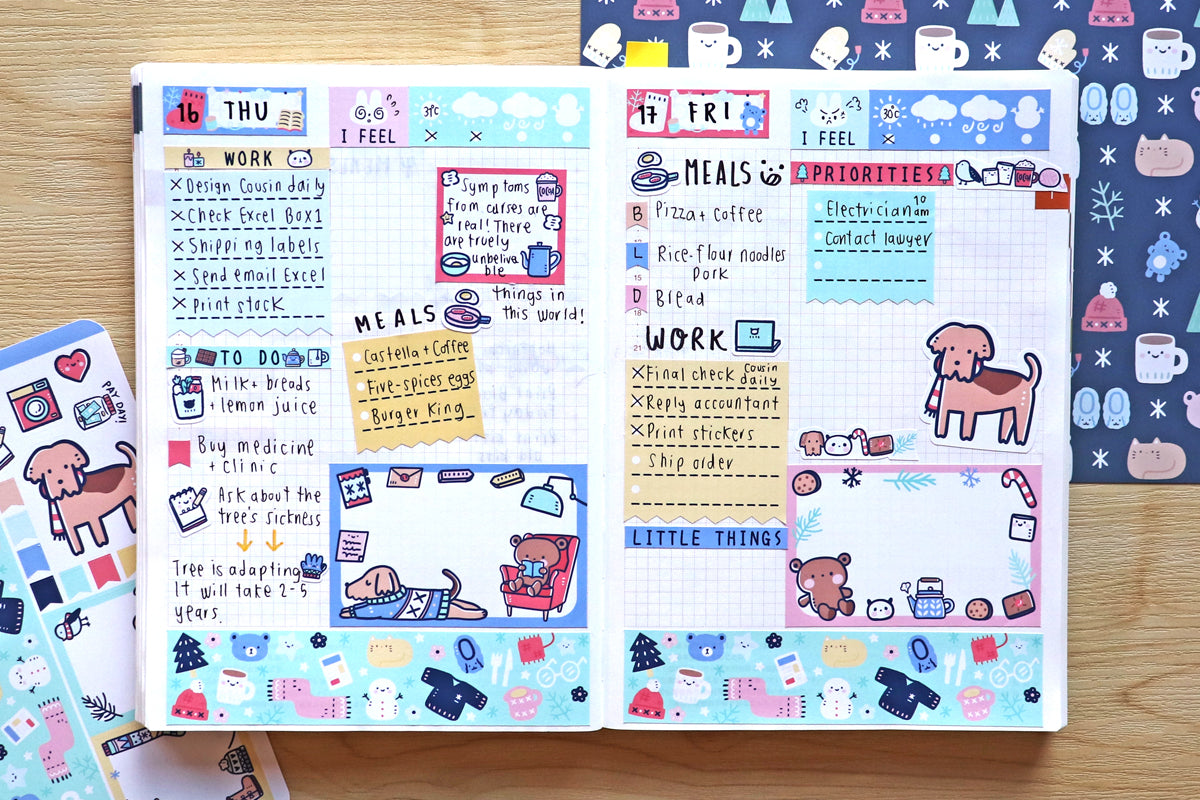 16 THU
I FEEL
31°C
WORK
Design Cousin daily
Check Excel Box1
Shipping labels
Send email Excel
Print stock
TO DO
Milk+ breads
+ lemon juice
Buy medicine
+ clinic
Ask about the
tree's sickness
Tree is adapting
It will take 2-5
years.
Symptoms
from curses are
real! There
are truely
unbeliva
ble
things in
this world!
COCOA
MEALS
Castella + Coffee
Five-spices eggs
Burger King
17 FRI
I FEEL
30°C
MEALS
B Pizza + Coffee
12
L Rice-flour noodles
pork
15
D Bread
18
21
WORK
Final check Cousin
daily
Reply accountant
Print stickers
Ship order
LITTLE THINGS
PRIORITIES
Electrician 10
am
Contact lawyer
PAY DAY!